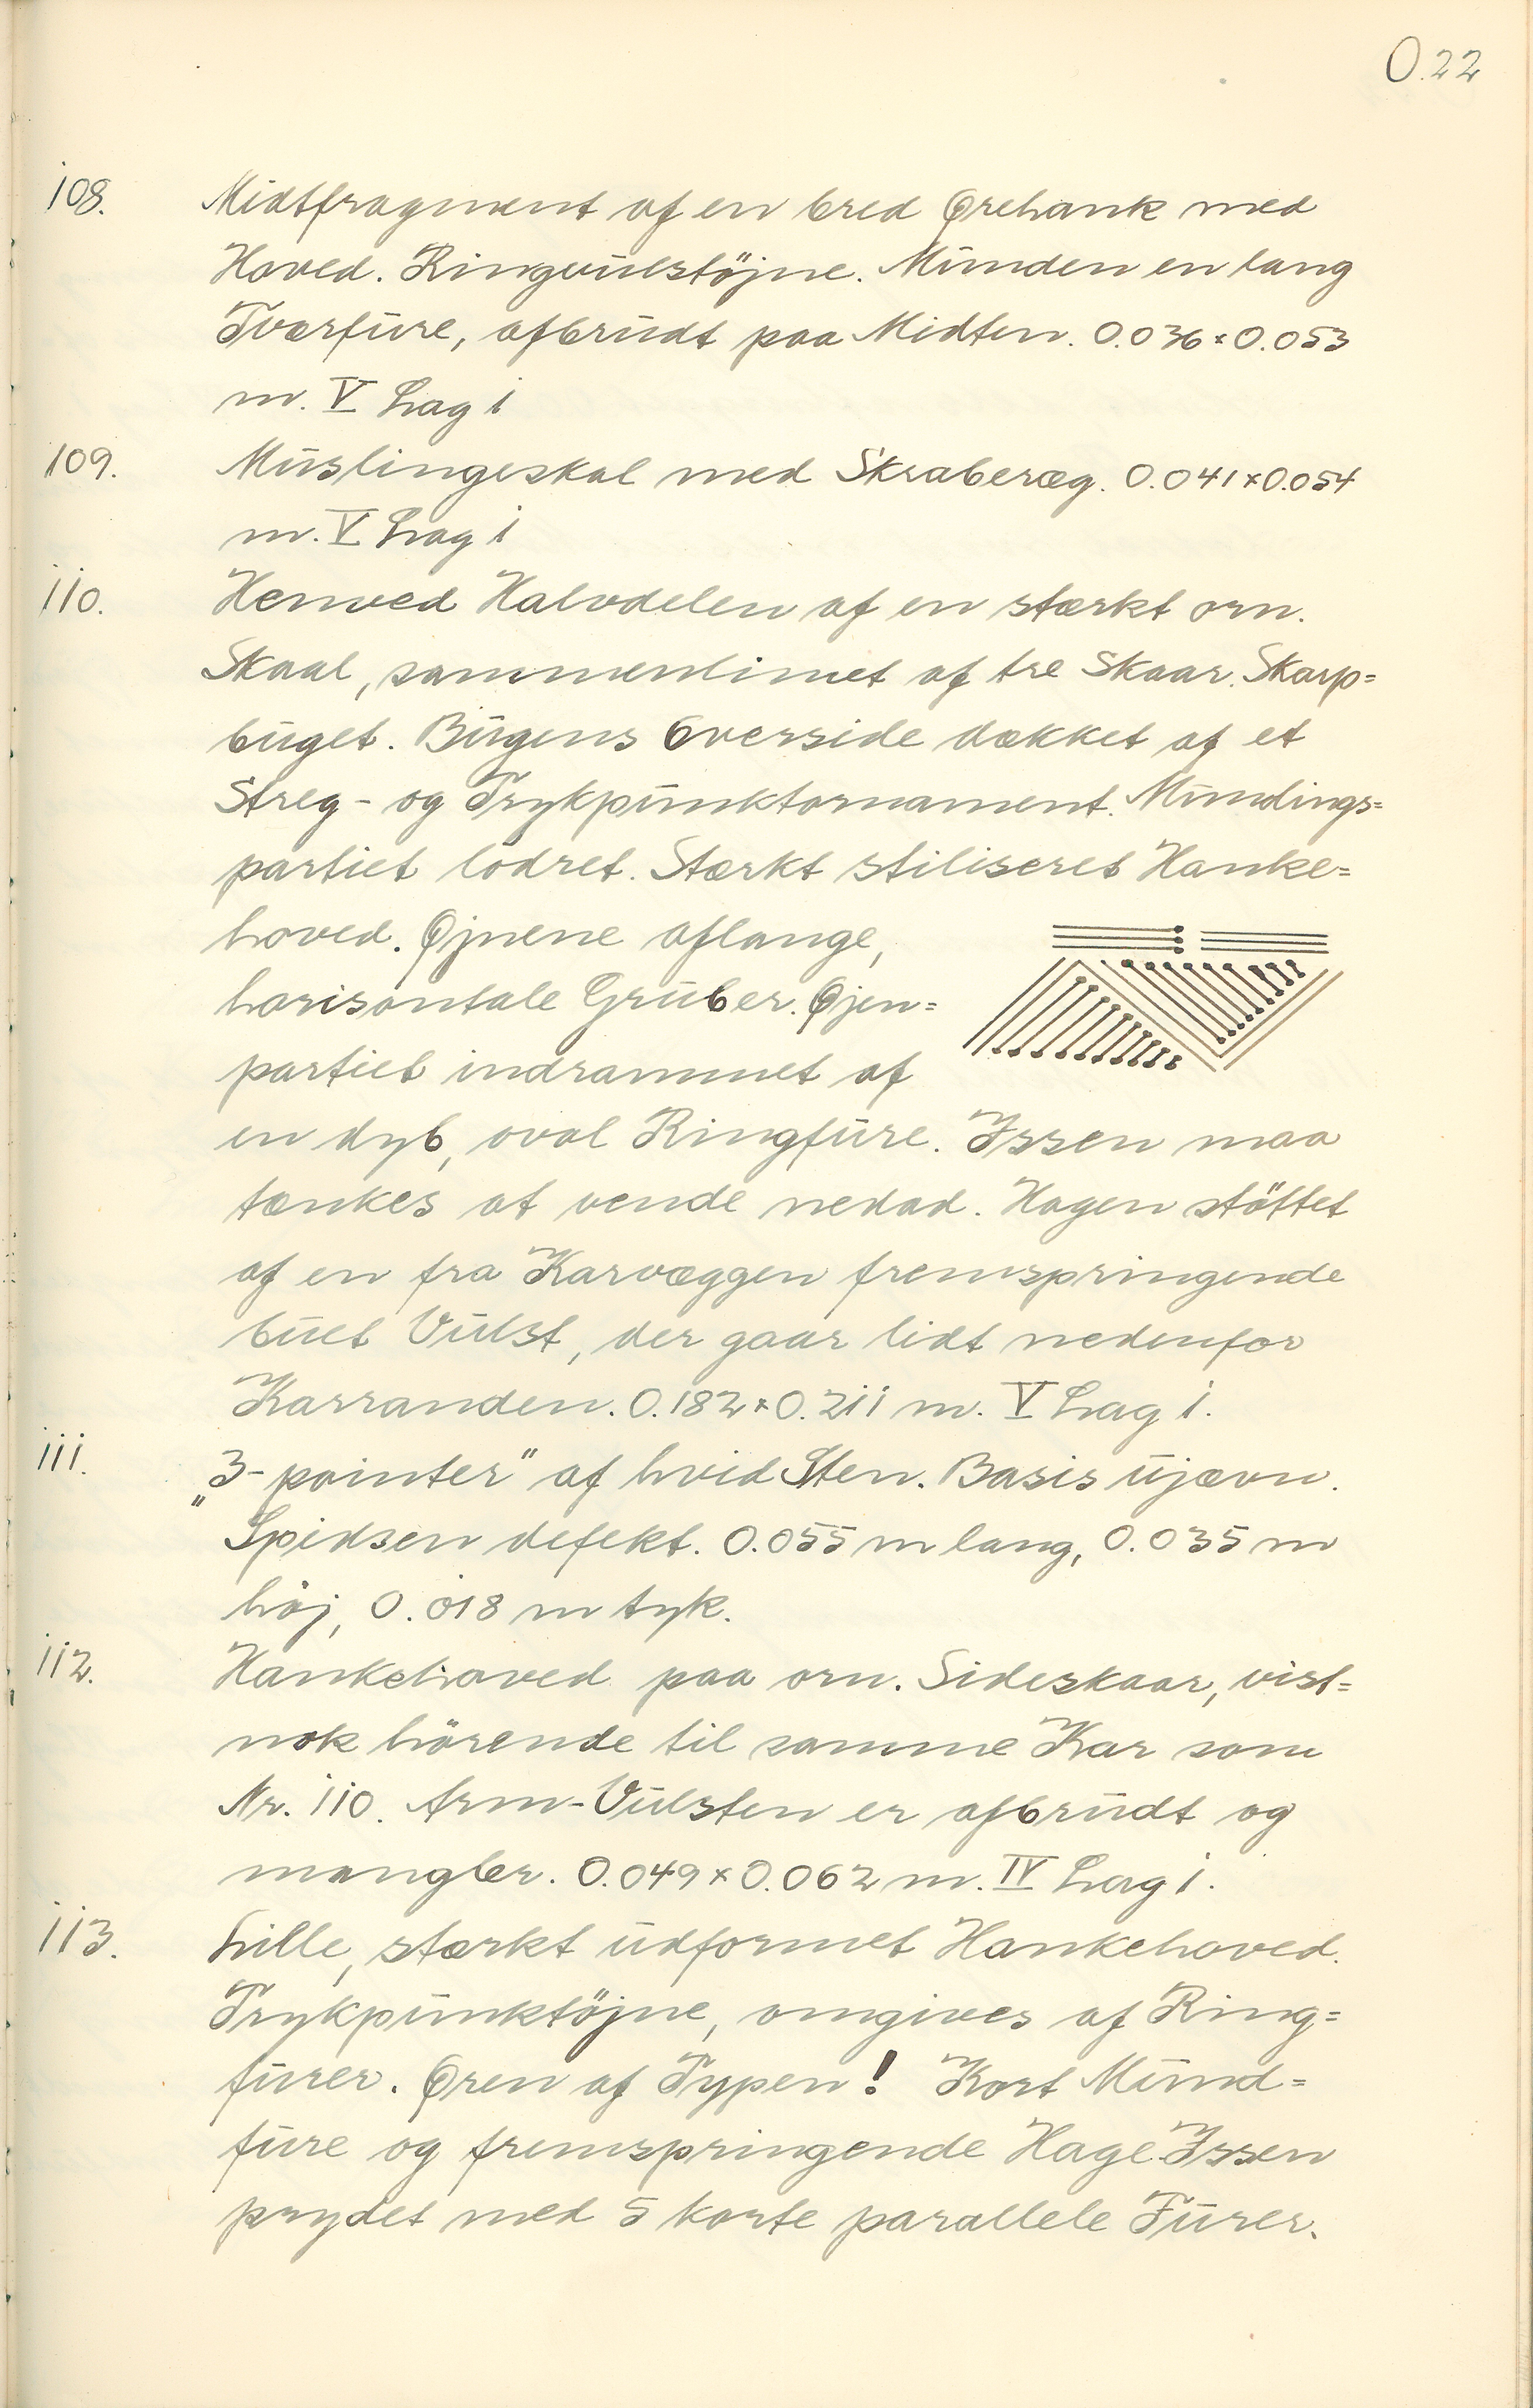 O.22
108. Midtfragment af en bred Ørehank med
Hoved. Ringvulstöjne. Munden en lang
Tværfure, afbrudt paa Midten. 0.036×0.053
m. V Lag 1
109. Muslingeskal med Skraberæg. 0.041×0.054
m. V Lag 1
110. Henved Halvdelen af en stærkt orn.
Skaal, sammenlimet af tre Skaar. Skarp=
buget. Bugens Overside dækket af et
Streg- og Trykpunktornament. Mundings=
partiet lodret. Stærkt stiliseret Hanke=
hoved. Øjnene aflange,
horisontale Gruber. Øjen=
partiet indrammet af
en dyb, oval Ringfure. Issen maa
tænkes at vende nedad. Hagen stöttet
af en fra Karvæggen fremspringende
buet Vulst, der gaar lidt nedenfor
Karranden. 0.182×0.211 m. V Lag 1.
111. „3-pointer" af hvid Sten. Basis ujævn.
Spidsen defekt. 0.055 m lang, 0.035 m
höj, 0.018 m tyk.
112. Hankehoved paa orn. Sideskaar, vist=
nok hörende til samme Kar som
Nr. 110. Arm-Vulsten er afbrudt og
mangler. 0.049×0.062 m. IV Lag 1.
113. Lille, stærkt udformet Hankehoved.
Trykpunktöjne, omgives af Ring=
furer. Øren af Typen! Kort Mund=
fure og fremspringende Hage. Issen
prydet med 5 korte parallele Furer.